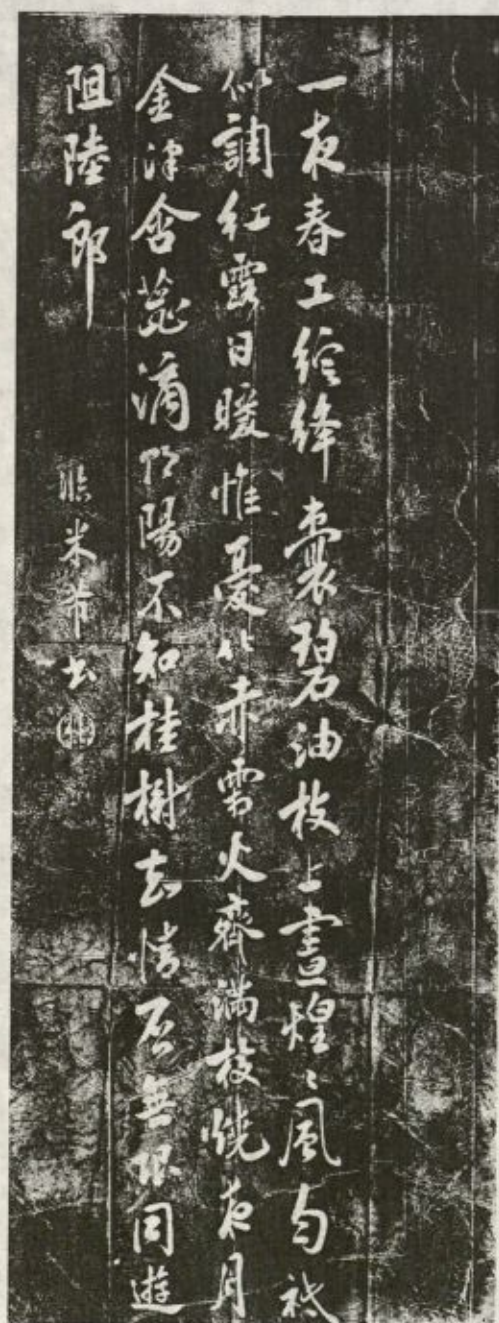 一夜春工綻絳囊碧油枝上晝煌〻風勻祗
似調紅露日暖惟憂化赤霜火齊滿枝燒夜月
金津含蕋滴朝陽不知桂樹知情否無限同遊
阻陸郎
臨米芾書